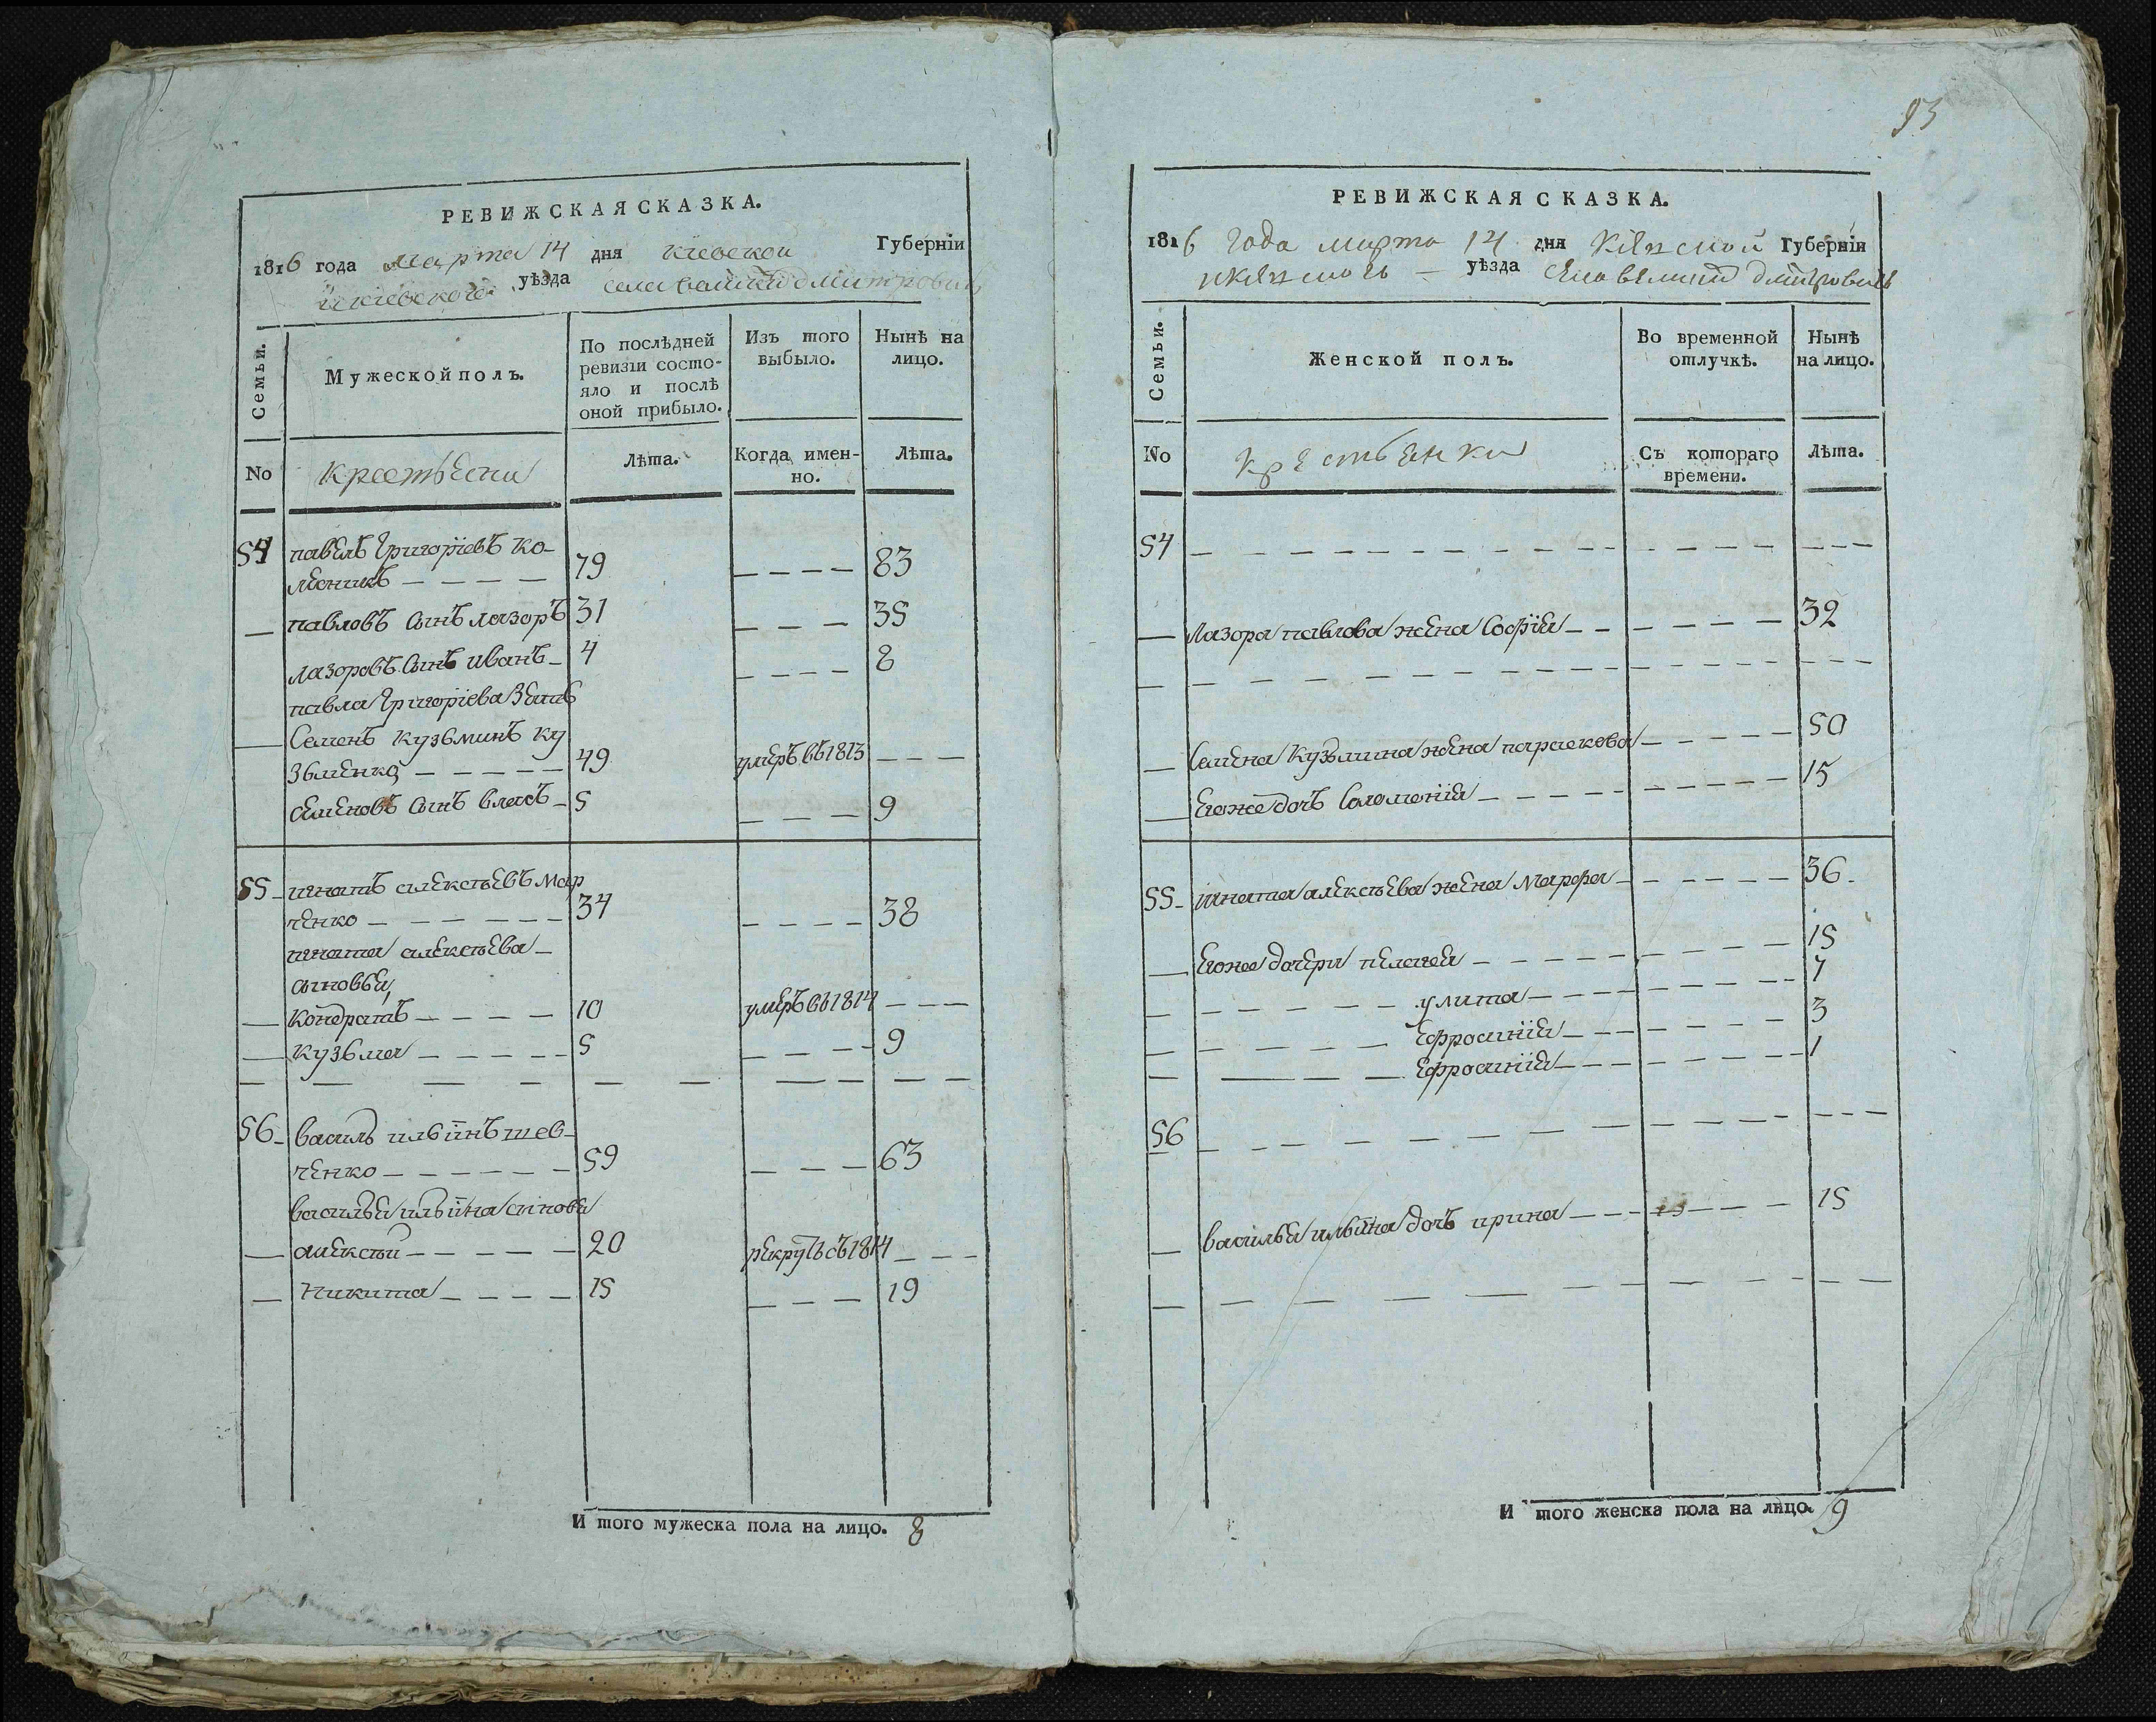 РЕВИЖСКАЯ СКАЗКА.
1816 года марта 14 дня киевской Губернїи
и киевского уѣзда села великихъ дмитровичь
Семьи.
Мужеской полъ.
По послѣдней
ревизіи состо-
яло и послѣ
оной прибыло.
Изъ того
выбыло.
Нынѣ на
лицо.
No
крестьени
Лѣта.
Когда имен-
но.
Лѣта.
54 павелъ григорїевъ ко-
леникъ 79 83
павловъ сынъ лазоръ 31 35
лазоровъ сынъ иванъ 4 8
павла григорїева зять
Семенъ кузьминъ ку
зьменко 49 умеръ въ 1813
семеновъ сынъ власъ 5 9
55 игнатъ алексѣевъ мар
ченко 34 38
игната алексѣева
сыновья
кондратъ 10 умеръ въ 1814
кузьма 5 9
56 василь ильинъ шев-
ченко 59 63
василья ильина синовья
алексѣй 20 рекрутъ съ 1814
никита 15 19
И того мужеска пола на лицо. 8
93
РЕВИЖСКАЯ СКАЗКА.
1816 года марта 14 дня Киевской Губернїи
и киевского уѣзда села великихъ дмитровичь
Семьи.
Женской полъ.
Во временной
отлучкѣ.
Нынѣ
на лицо.
No
крестьенки
Съ котораго
времени.
Лѣта.
54
лазора павлова жена Софїя 32
Семена кузьмина жена параскева 50
Егоже дочь Соломонїя 15
55 игната алексѣева жена марфа 36
Егоже дочери пелагея 15
улита 7
Ефросинїя 3
Ефросинїя 1
56
василья ильина дочь ирина 15
И того женска пола на лицо. 9